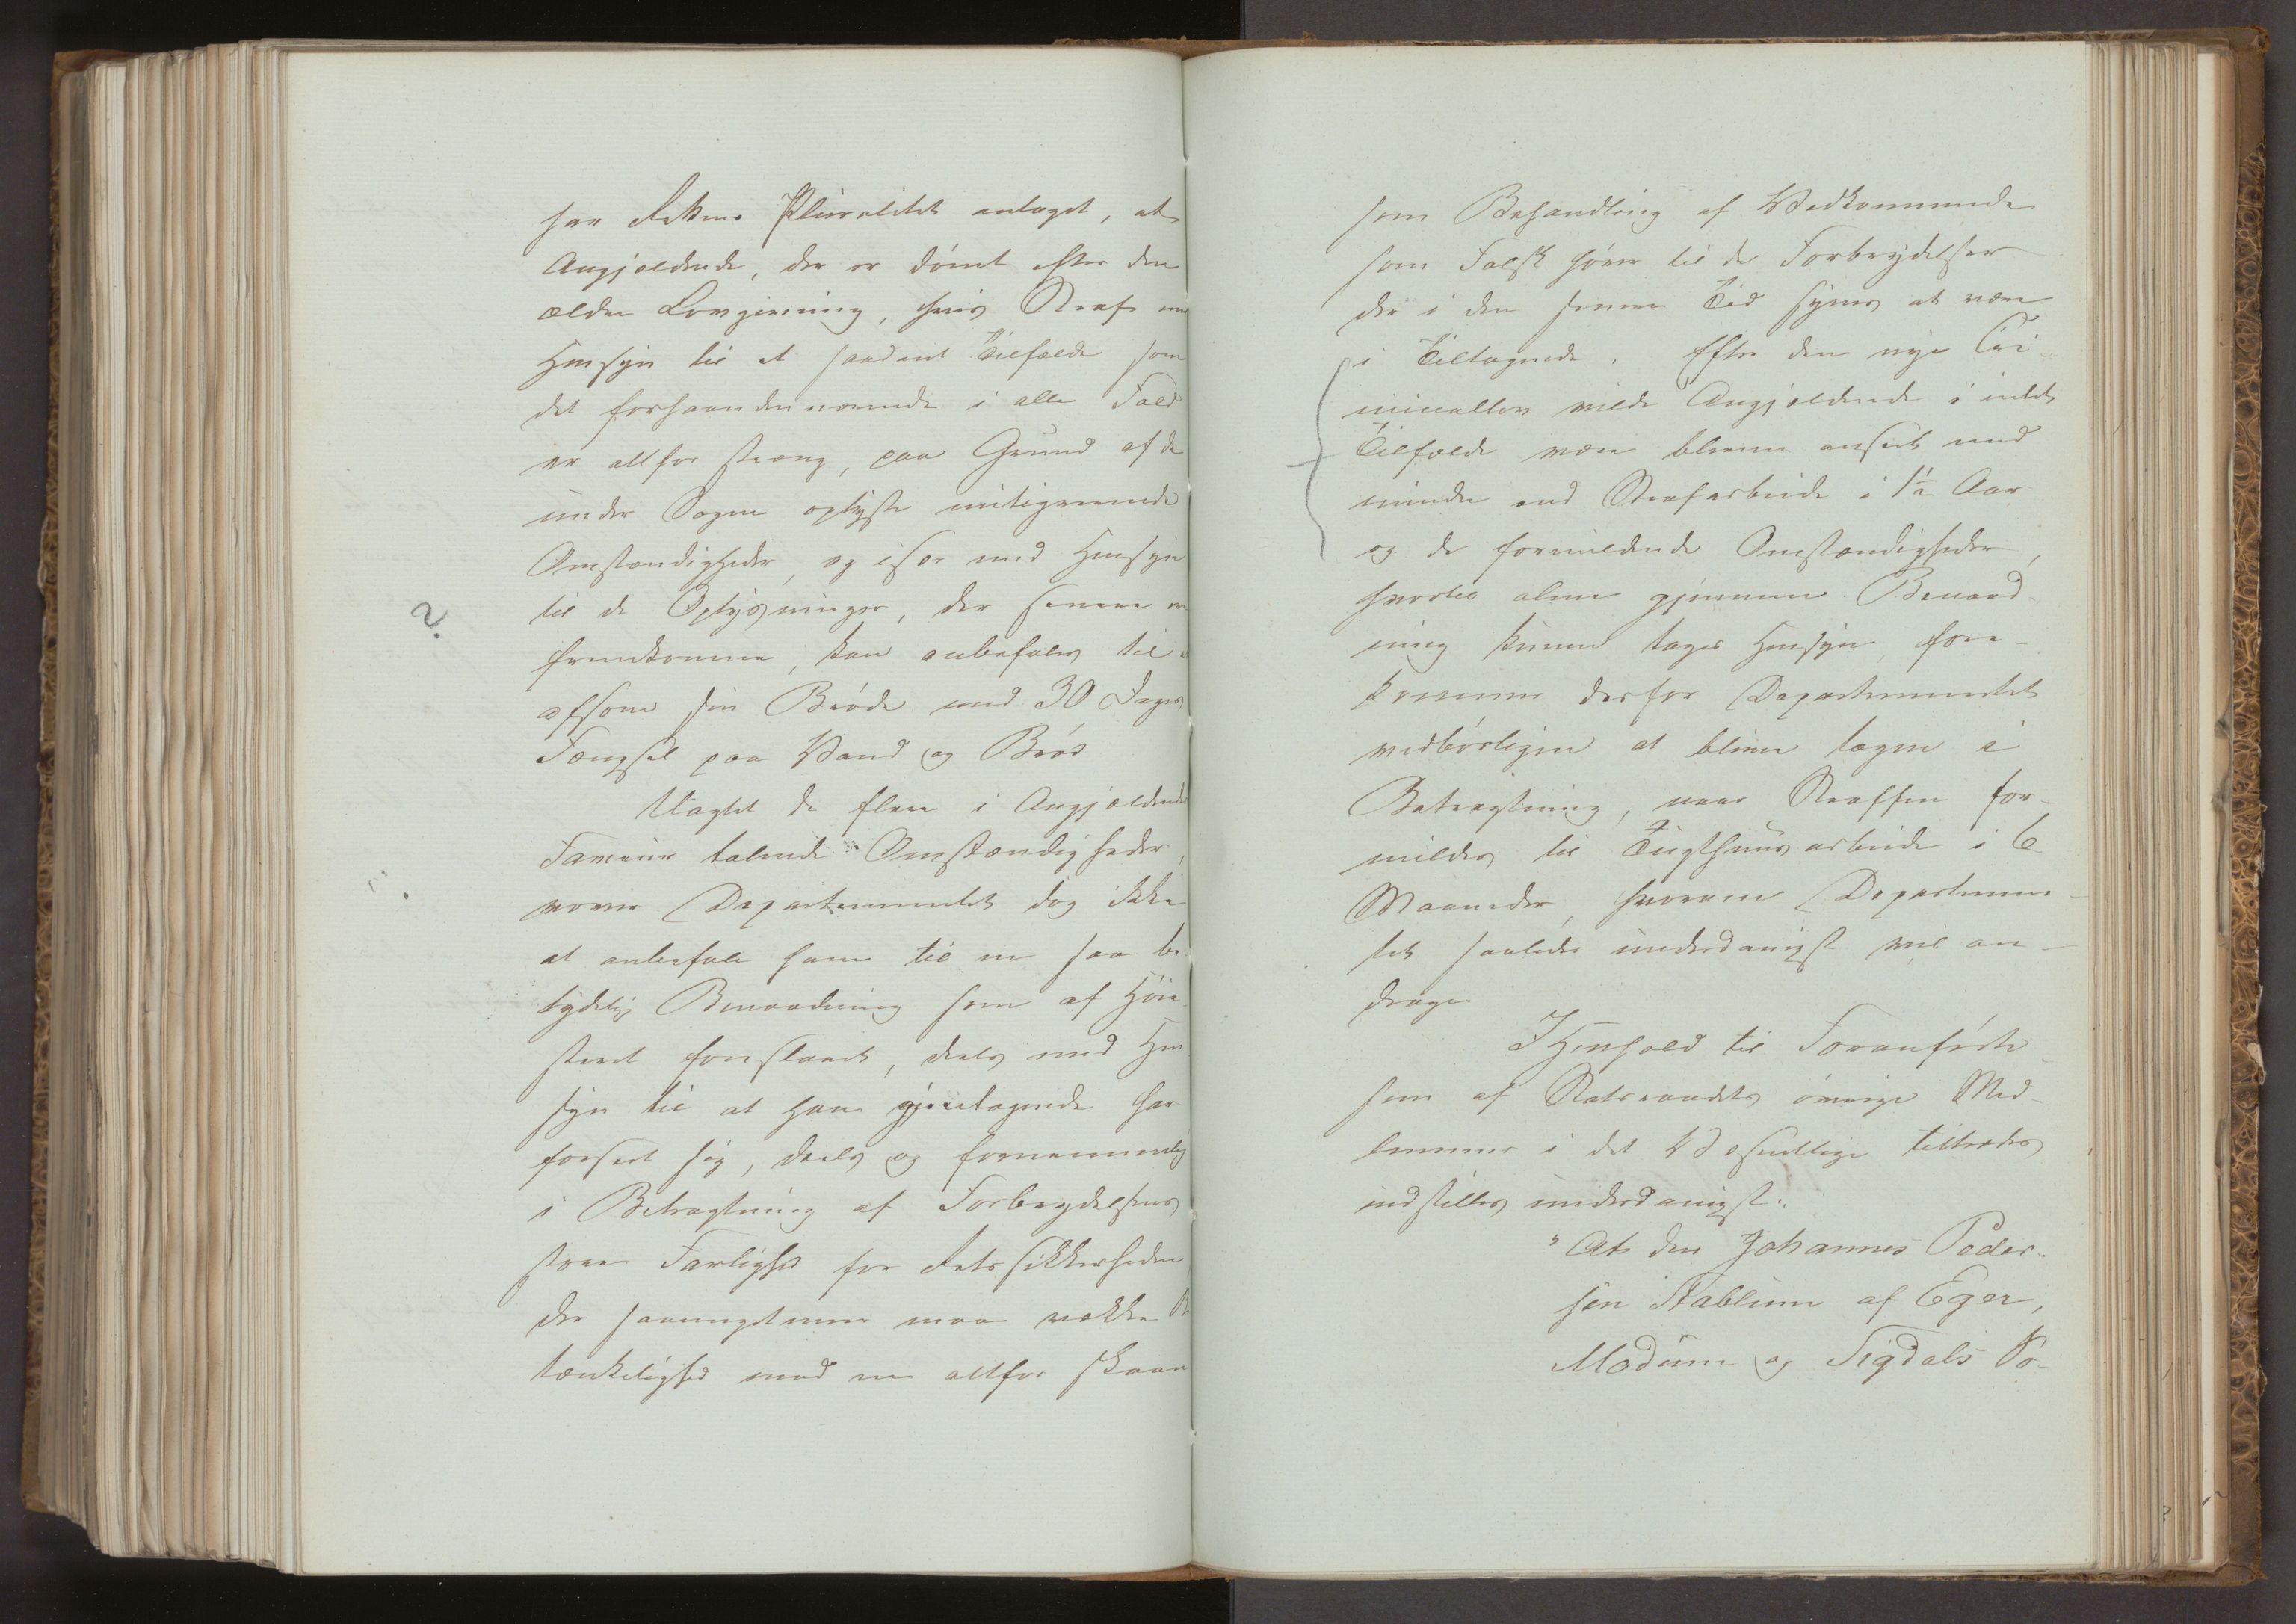 har Rettens Pluralitet antaget, at
Angjældende, der er dømt efter den
ældre Lovgivning, hvis Straf med
Hensyn til et saadant Tilfælde som
det forhaandenværende i alle Fald
er altfor streng, paa Grund af de
under Sagen oplyste mitigerende
Omstændigheder, og især med Hensyn
til de Oplysninger, der senere er
fremkomne, kan anbefales til
afsone sin Brøde med 30 Dages
Fængsel paa Vand og Brød
Uagtet de flere i Angjældendes
Faveur talende Omstændigheder,
vover Departementet dog ikke
at anbefale ham til en saa be-
tydelig Benaadning som af Høie-
steret foreslaaet, deels med Hen
syn til at han gjentagende har
forseet sig, deels og fornemmelig
i Betragtning af Forbrydelsens
store Farlighed for Retssikkerheden
der saavngt mere maa vække Be
tænkelighed mod en altfor skaan
?
som Behandling af Vedkommende
som Falsk hører til de Forbrydelser
der i den senere Tid synes at være
i Tiltagende. Efter den nye Cri-
minallov vilde Angjældende i intet
Tilfælde være bleven anseet med
mindre end Strafarbeide i 1½ Aar
og de formildende Omstændigheder,
hvortil alene gjennem Benaad-
ning kunne tages Hensyn fore-
kommer derfor Departementet
vedbørligen at blive tagne i
Betragtning, naar Straffen for-
mildes til Tugthuusarbeide i 6
Maaneder, hvorom Departemen-
tet saaledes underdanigst vil an-
drage
I Henhold til Foranførte
som af Statsraadets øvrige Med-
lemmer i det Væsentlige tiltrædes
indstilles underdanigst:
"At den Johannes Peder-
sen Stablum af Eger,
Modum og Sigdals So-